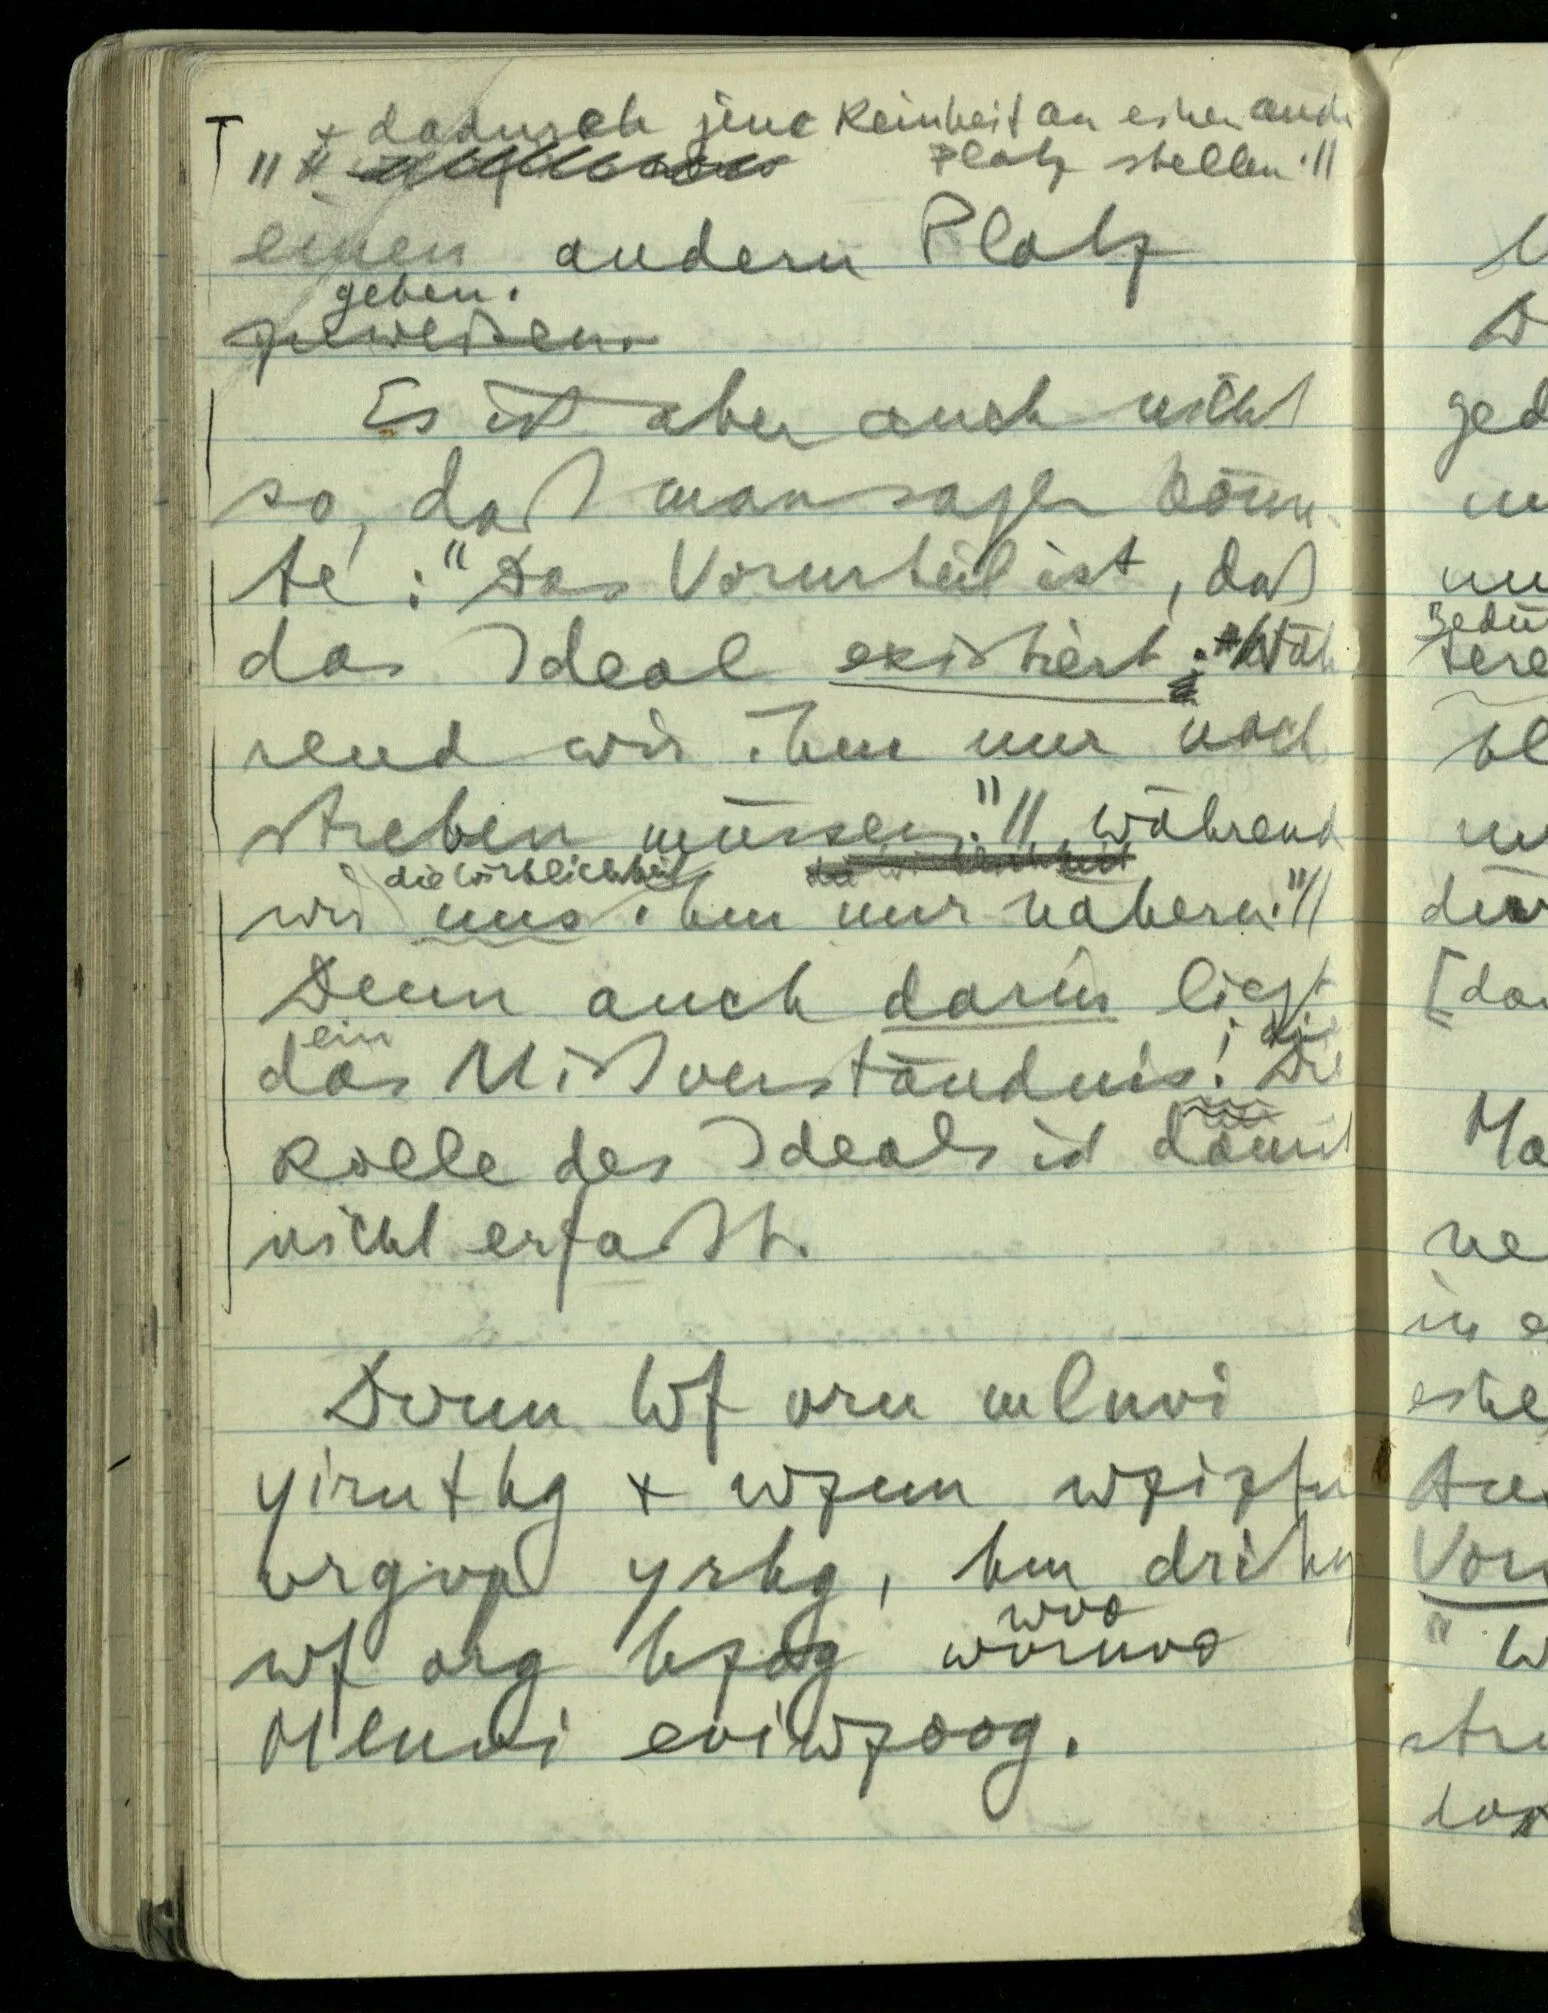 + dadurch jene Reinheit an einen andern
" " Platz stellen."
einen andern Platz
geben.
zuweisen.
Es ist aber auch nicht
so, daß man sagen könn-
te: "Das Vorurteil ist, daß
das Ideal existiert; Wäh
rend wir ihm nur nach
streben müssen."// während
wir die Wirklichkeit
uns ihm nur nähern."//
Denn auch darin liegt
ein
das Mißverständnis; die
Rolle des Ideals ist damit
nicht erfaßt.
Dvnn Wf vrn mluvi
yirnthg + wznn wzizfu
vrgvp yrhg, hm drihg
wvo
wf org hzog wvrnvo
Mluvi eviwzoog.